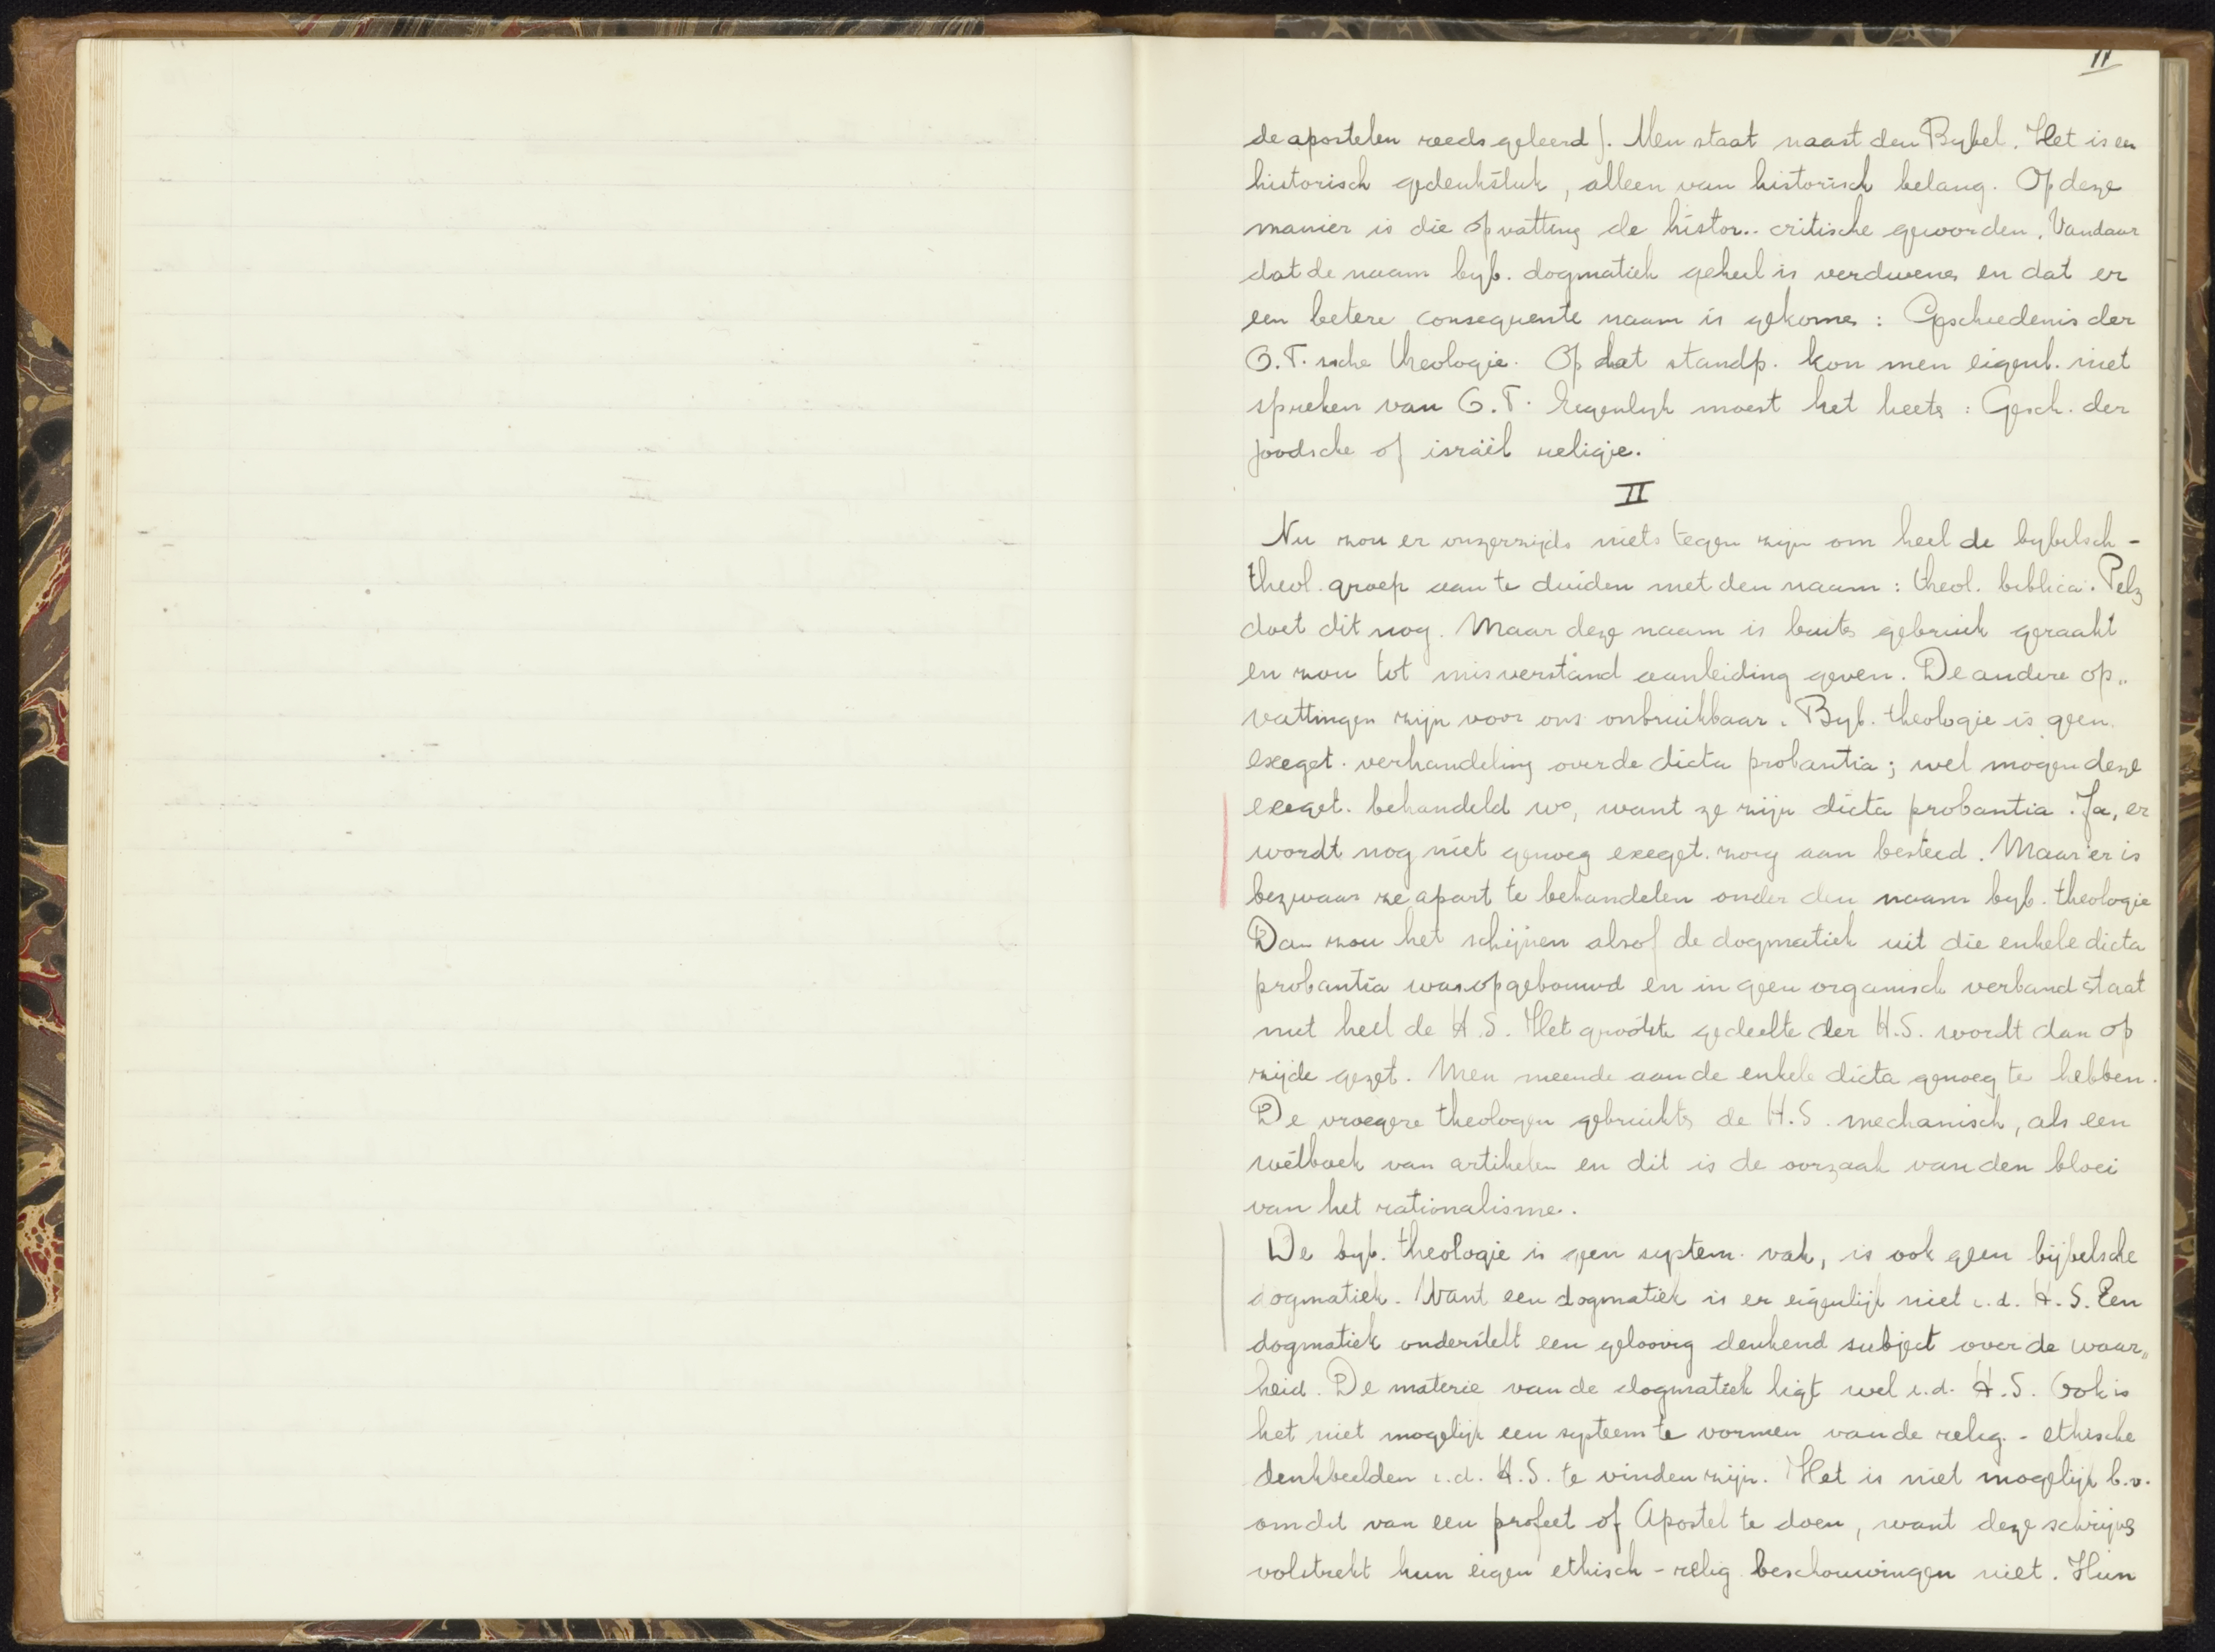 11
de apostelen reeds geleerd). Men staat naast den Bybel. Het is en
historisch gedenkstuk, alleen van historisch belang. Op deze
manier is die opvatting de histor.. critische geworden. Vandaar
dat de naam byb. dogmatiek geheel is verdwenen en dat er
een betere consequente naam is gekomen : Geschiedenis der
O.T.sche theologie. Op dat standp. kon men eigenl. niet
spreken van O.T. Eigenlyk moest het heeten : Gesch. der
Joodsche of israël religie.
II
Nu zou er onzerzijds niets tegen zijn om heel de bybelsch -
theol. groep aan te duiden met den naam : theol. biblica. Pelz
doet dit nog. Maar deze naam is buiten gebruik geraakt
en zou tot misverstand aanleiding geven. De andere op„
vattingen zijn voor ons onbruikbaar. Byb. theologie is geen
exeget. verhandeling over de dicta probantia ; wel mogen deze
exeget. behandeld wo, want ze zijn dicta probantia. Ja, er
wordt nog niet genoeg exeget. zorg aan besteed. Maar er is
bezwaar ze apart te behandelen onder den naam byb. theologie
Dan zou het schijnen alsof de dogmatiek uit die enkele dicta
probantia was opgebouwd en in geen organisch verband staat
met heel de H.S. Het grootste gedeelte der H.S. wordt dan op
zijde gezet. Men meende aan de enkele dicta genoeg te hebben.
De vroegere theologen gebruikten de H.S. mechanisch, als een
wetboek van artikelen en dit is de oorzaak van den bloei
van het rationalisme.
De byb. theologie is geen system. vak, is ook geen bijbelsche
dogmatiek. Want een dogmatiek is er eigenlijk niet i.d. H.S. Een
dogmatiek onderstelt een geloovig denkend subject over de waar„
heid. De materie van de dogmatiek ligt wel i.d. H.S. Ook is
het niet mogelijk een systeem te vormen van de relig. - ethische
denkbeelden i.d. H.S. te vinden zijn. Het is niet mogelijk b.v.
om dit van een profeet of Apostel te doen, want deze schrijven
volstrekt hun eigen ethisch - relig beschouwingen niet. Hun